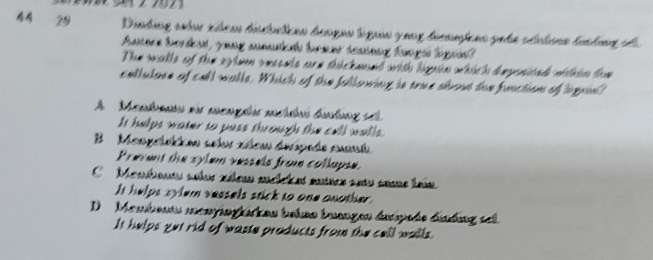 44 29 Dinding salur xilem ditebalkan dengan lignin yang
yang
The walls of the xylem vessels are thickened with lignin which is deposited within the
cellulose of cell walls. Which of the following is true about the function of lignin?
A Membantu air mengalir melalui dinding sel.
It helps water to pass through the cell walls.
B Mengelakkan salur xilem daripada
Prevent the xylem vessels from collapse.
C Membantu salur xilem melekat antara satu sama lain.
It helps xylem vessels stick to one another.
D Membantu menyingkirkan bahan buangan daripada dinding sel.
It helps get rid of waste products from the cell walls.